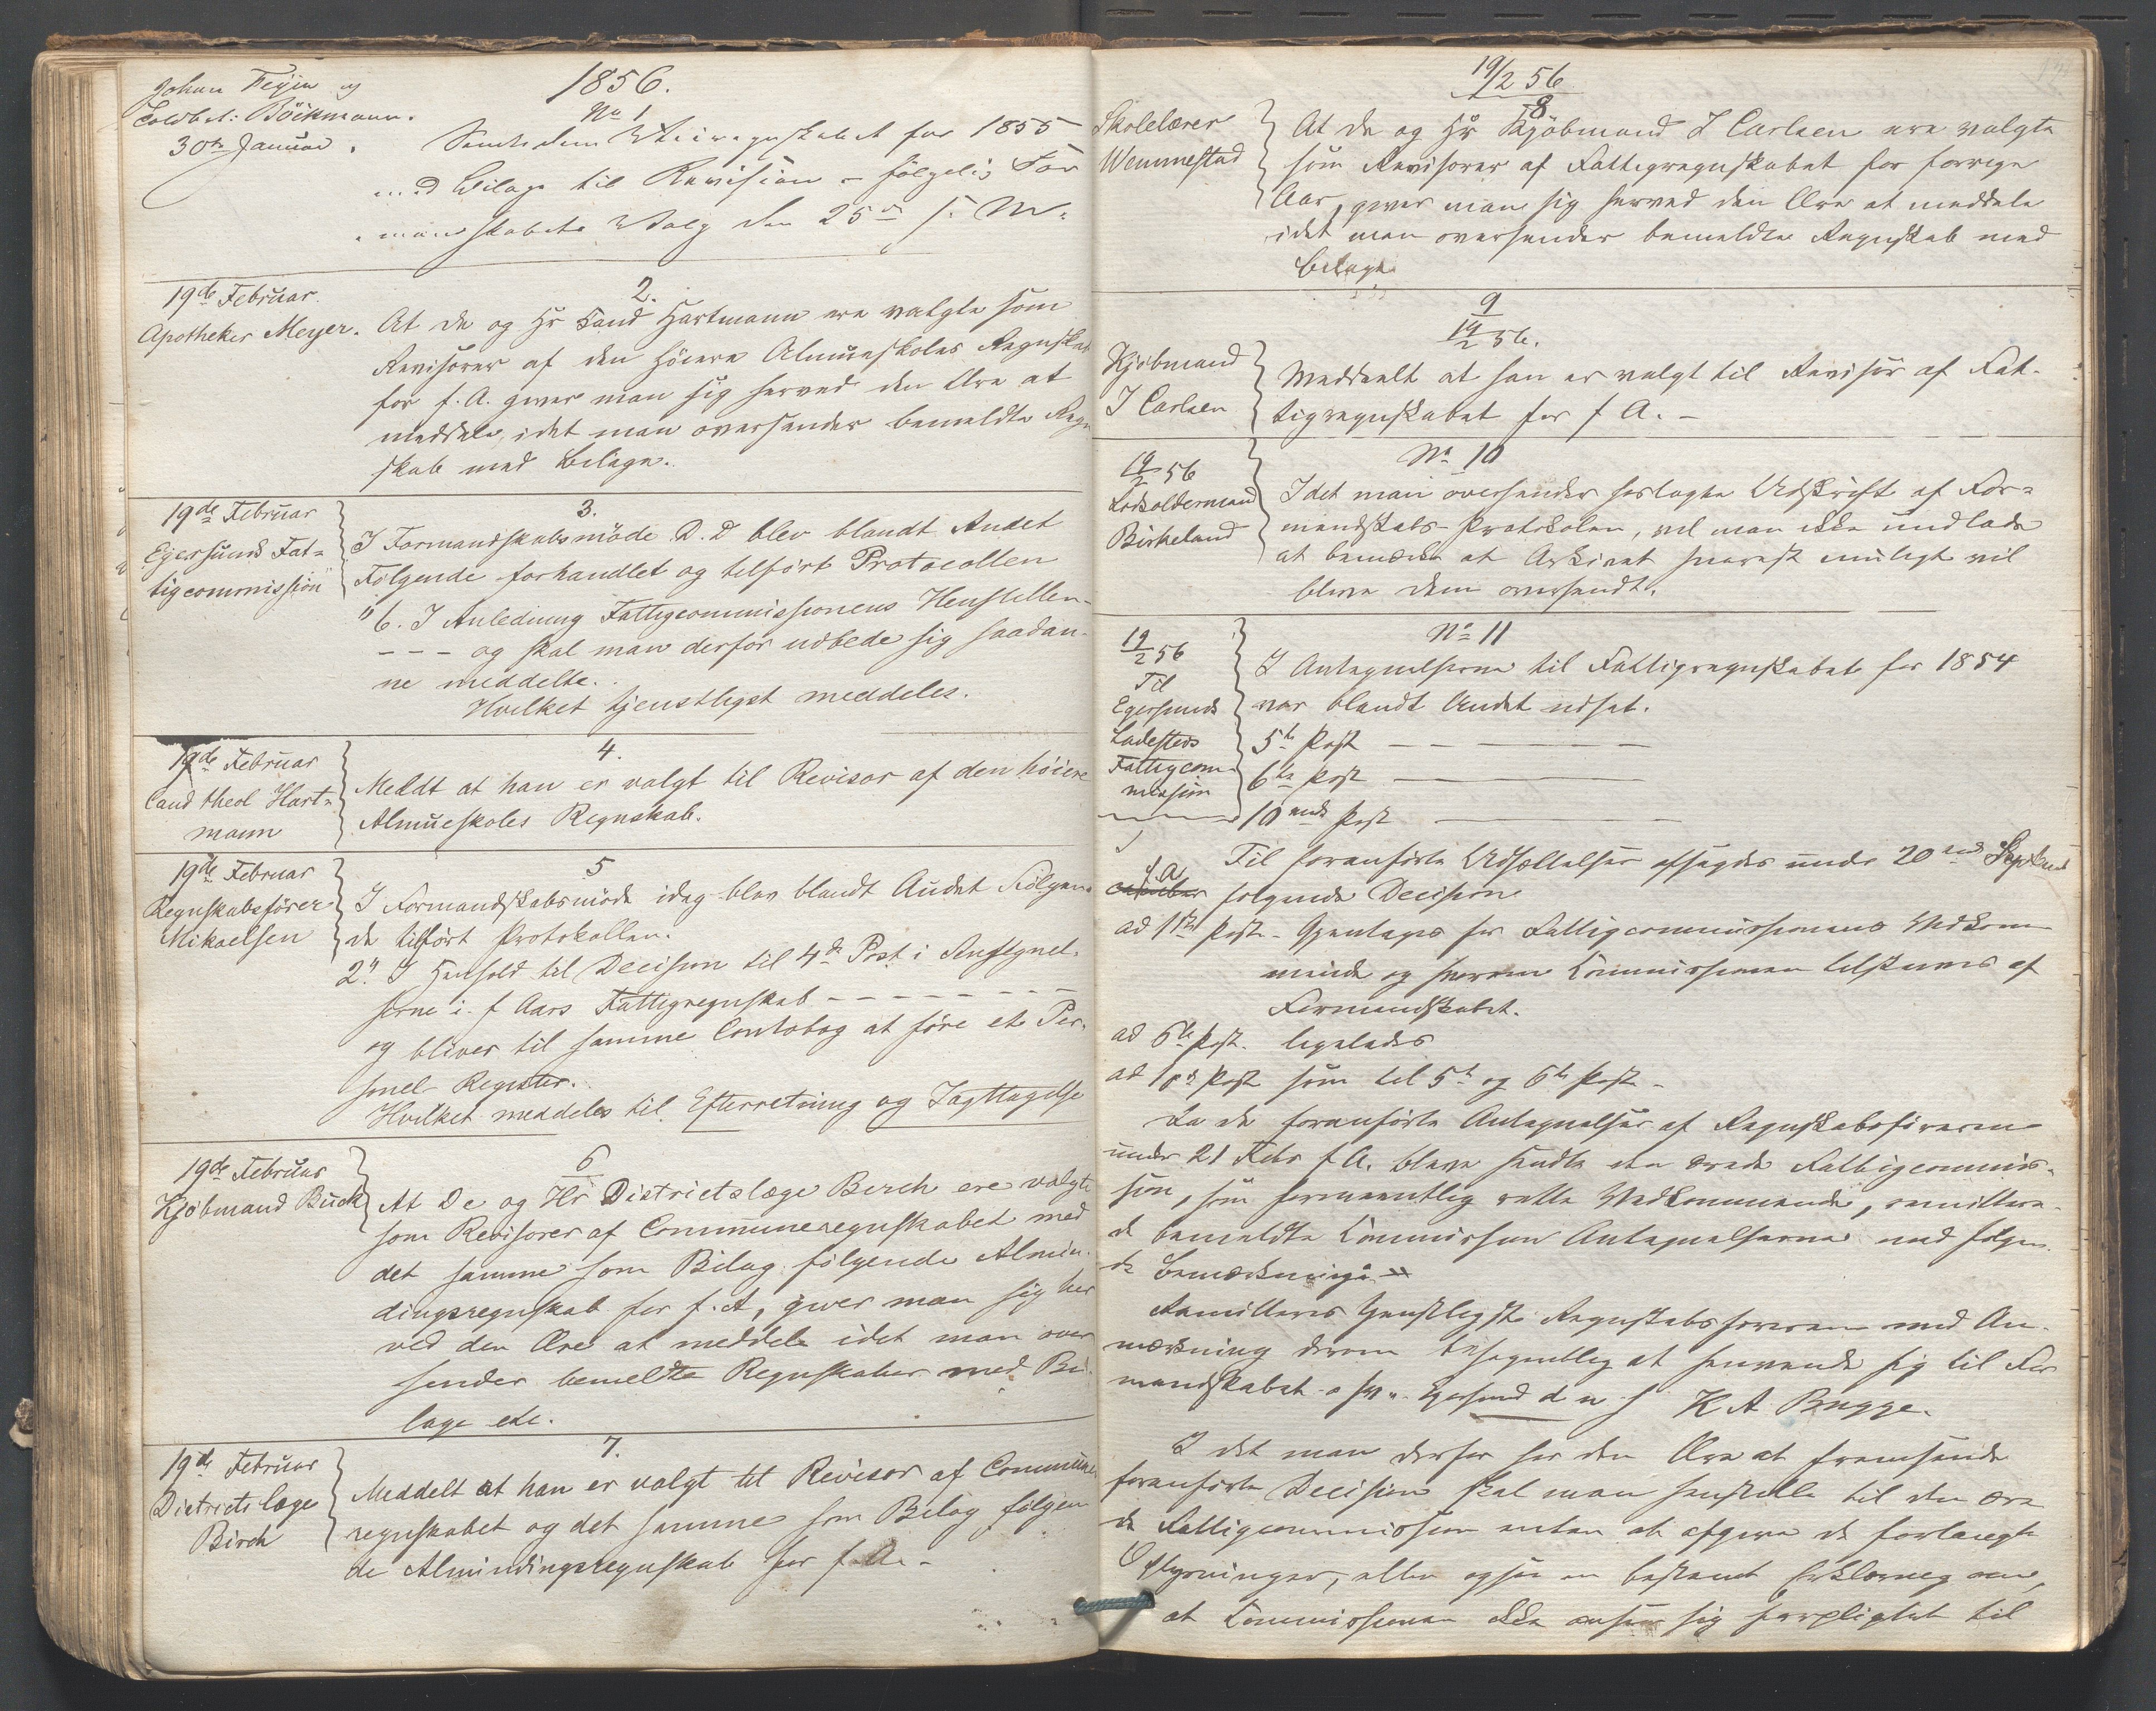 1856.
Johan Feyer og
Toldbet: Böckmann.
30te Januar.
No 1
Sendt dem Veiregnskabet for 1855
med Bilage til Revision - følgelig For
mandskabets Valg den 25de f. M.
19de Februar
Apotheker Meyer.
2.
At De og Hr Cand Hartmann ere valgte som
Revisorer af den höiere Almueskoles Regnskab
for f. A. giver man sig herved den Ære at
meddele, idet man oversender bemeldte Regn
skab med Bilage.
19de Februar
Egersunds Fat-
tigcommission
3.
I Formandskabsmöde D. D blev blandt Andet
Følgende forhandlet og tilført Protocollen
"6. I Anledning Fattigcommissionens Henstillen-
- - - og skal man derfor udbede sig saadan-
ne meddelte.
Hvilket tjenstligst meddeles.
19de Februar
Cand theol Hart-
mann
4.
Meldt at han er valgt til Revisor af den höiere
Almueskoles Regnskab.
19de Februar
Regnskabsförer
Mikaelsen
5
I Formandskabsmöde idag blev blandt Andet Fölgen-
de tilfört Protokollen.
2". I Henhold til Decision til 4de Post i Antegnel-
serne i f Aars Fattigregnskab - - - - - - - -
og bliver til samme Contobog at före et Per-
sonel Register.
Hvilket meddeles til Efterretning og Iagttagelse
19de Februar
Kjöbmand Buck
6
At De og Hr Districtslæge Berch ere valgte
som Revisorer af Communeregnskabet med
det samme som Bilag fölgende Almin-
dingsregnskab for f. A, giver man sig her
ved den Ære at meddele idet man over
sender bemeldte Regnskaber med Bi-
lage etc.
19de Februar
Districtslæge
Birch
7.
Meddelt at han er valgt til Revisor af Commune
regnskabet og det samme som Bilag fölgen
de Almindingsregnskab for f. A. -
19/2 56
8
Skolelærer
Wemmestad
At De og Hr Kjöbmand I Carlsen ere valgte
som Revisorer af Fattigregnskabet for forrige
Aar, giver man sig herved den Ære at meddele
idet man oversender bemeldte Regnskab med
Bilage
9
19/2 56.
Kjöbmand
I Carlsen
Meddeelt at han er valgt til Revisor af Fat-
tigregnskabet for f A. -
No 10
19/2 56
Lodsoldermand
Birkeland
Idet man oversender forlangte Udskrift af For-
mandskabs-Protokolen, vil man ikke undlade
at bemærke at Arkivet snarest muligt vil
blive Dem oversendt.
No 11
19/2 56
Til
Egersunds
Ladesteds
Fattigcom-
mission
I Antegnelserne til Fattigregnskabet for 1854
var blandt Andet udsat.
5te Post - - - - -
6te Post - - - - -
10ende Post - - - - -
Til foranförte Udsættelser afsagdes under 20de Septemb
f. A. følgende Decision
ad 1ste Post - Gjentages for Fattigcommissionens Vedkom-
mende og Commissionen tilskrives af
Formandskabet.
ad 6te Post. ligeledes
ad 10de Post som til 5te og 6te Post. -
Da de foranförte Antegnelser af Regnskabsföreren
under 21 Febr f A. bleve sendte den ærede Fattigcommis-
sion, som formeentlig rette Vedkommende, remittere-
de bemeldte Commission Antegnelserne med følgen-
de Bemærkning
Remitteres tjenstligst Regnskabsføreren med An-
mærkning derom at henvende sig til For
mandskabet Egersund d u s K A Brygge.
I det man derfor har den Ære at fremsende
foranförte Decision skal man henstille til den ære
de Fattigcommission enten at afgive de forlangte
Oplysninger, eller ogsaa en bestemt Erklæring om,
at Commissionen ikke anser sig forpligtet til